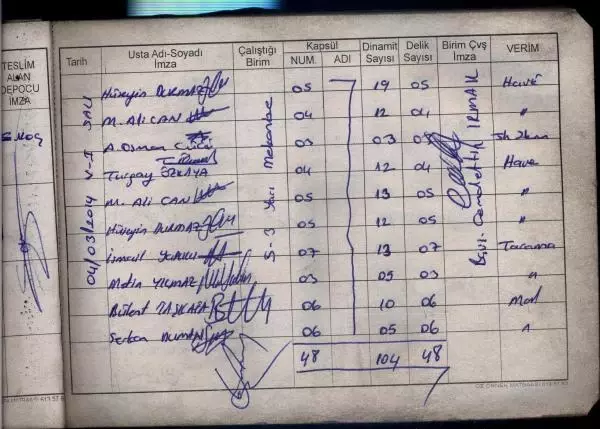 TESLİM ALAN DEPOCU İMZA
Tarih Usta Adı-Soyadı İmza Çalıştığı Birim Kapsül NUM. ADI Dinamit Sayısı Delik Sayısı Birim Çvş İmza VERİM
04/03/2014 V-I SALI
S-3 Yarı Mekanize
Hüseyin DURMAZ 05 19 05 Hava
M. Ali CAN 04 12 04 "
A. Osman 03 03 03
Turgay ÖZKAYA 04 12 04 Hava
M. Ali CAN 05 13 05 "
Hüseyin DURMAZ 05 12 05 "
İsmail 07 13 07 Tarama
Metin YILMAZ 03 05 03 "
Bülent 06 10 06
Serkan DUMAN 06 05 06 "
48 104 48
Cemalettin IRMAK